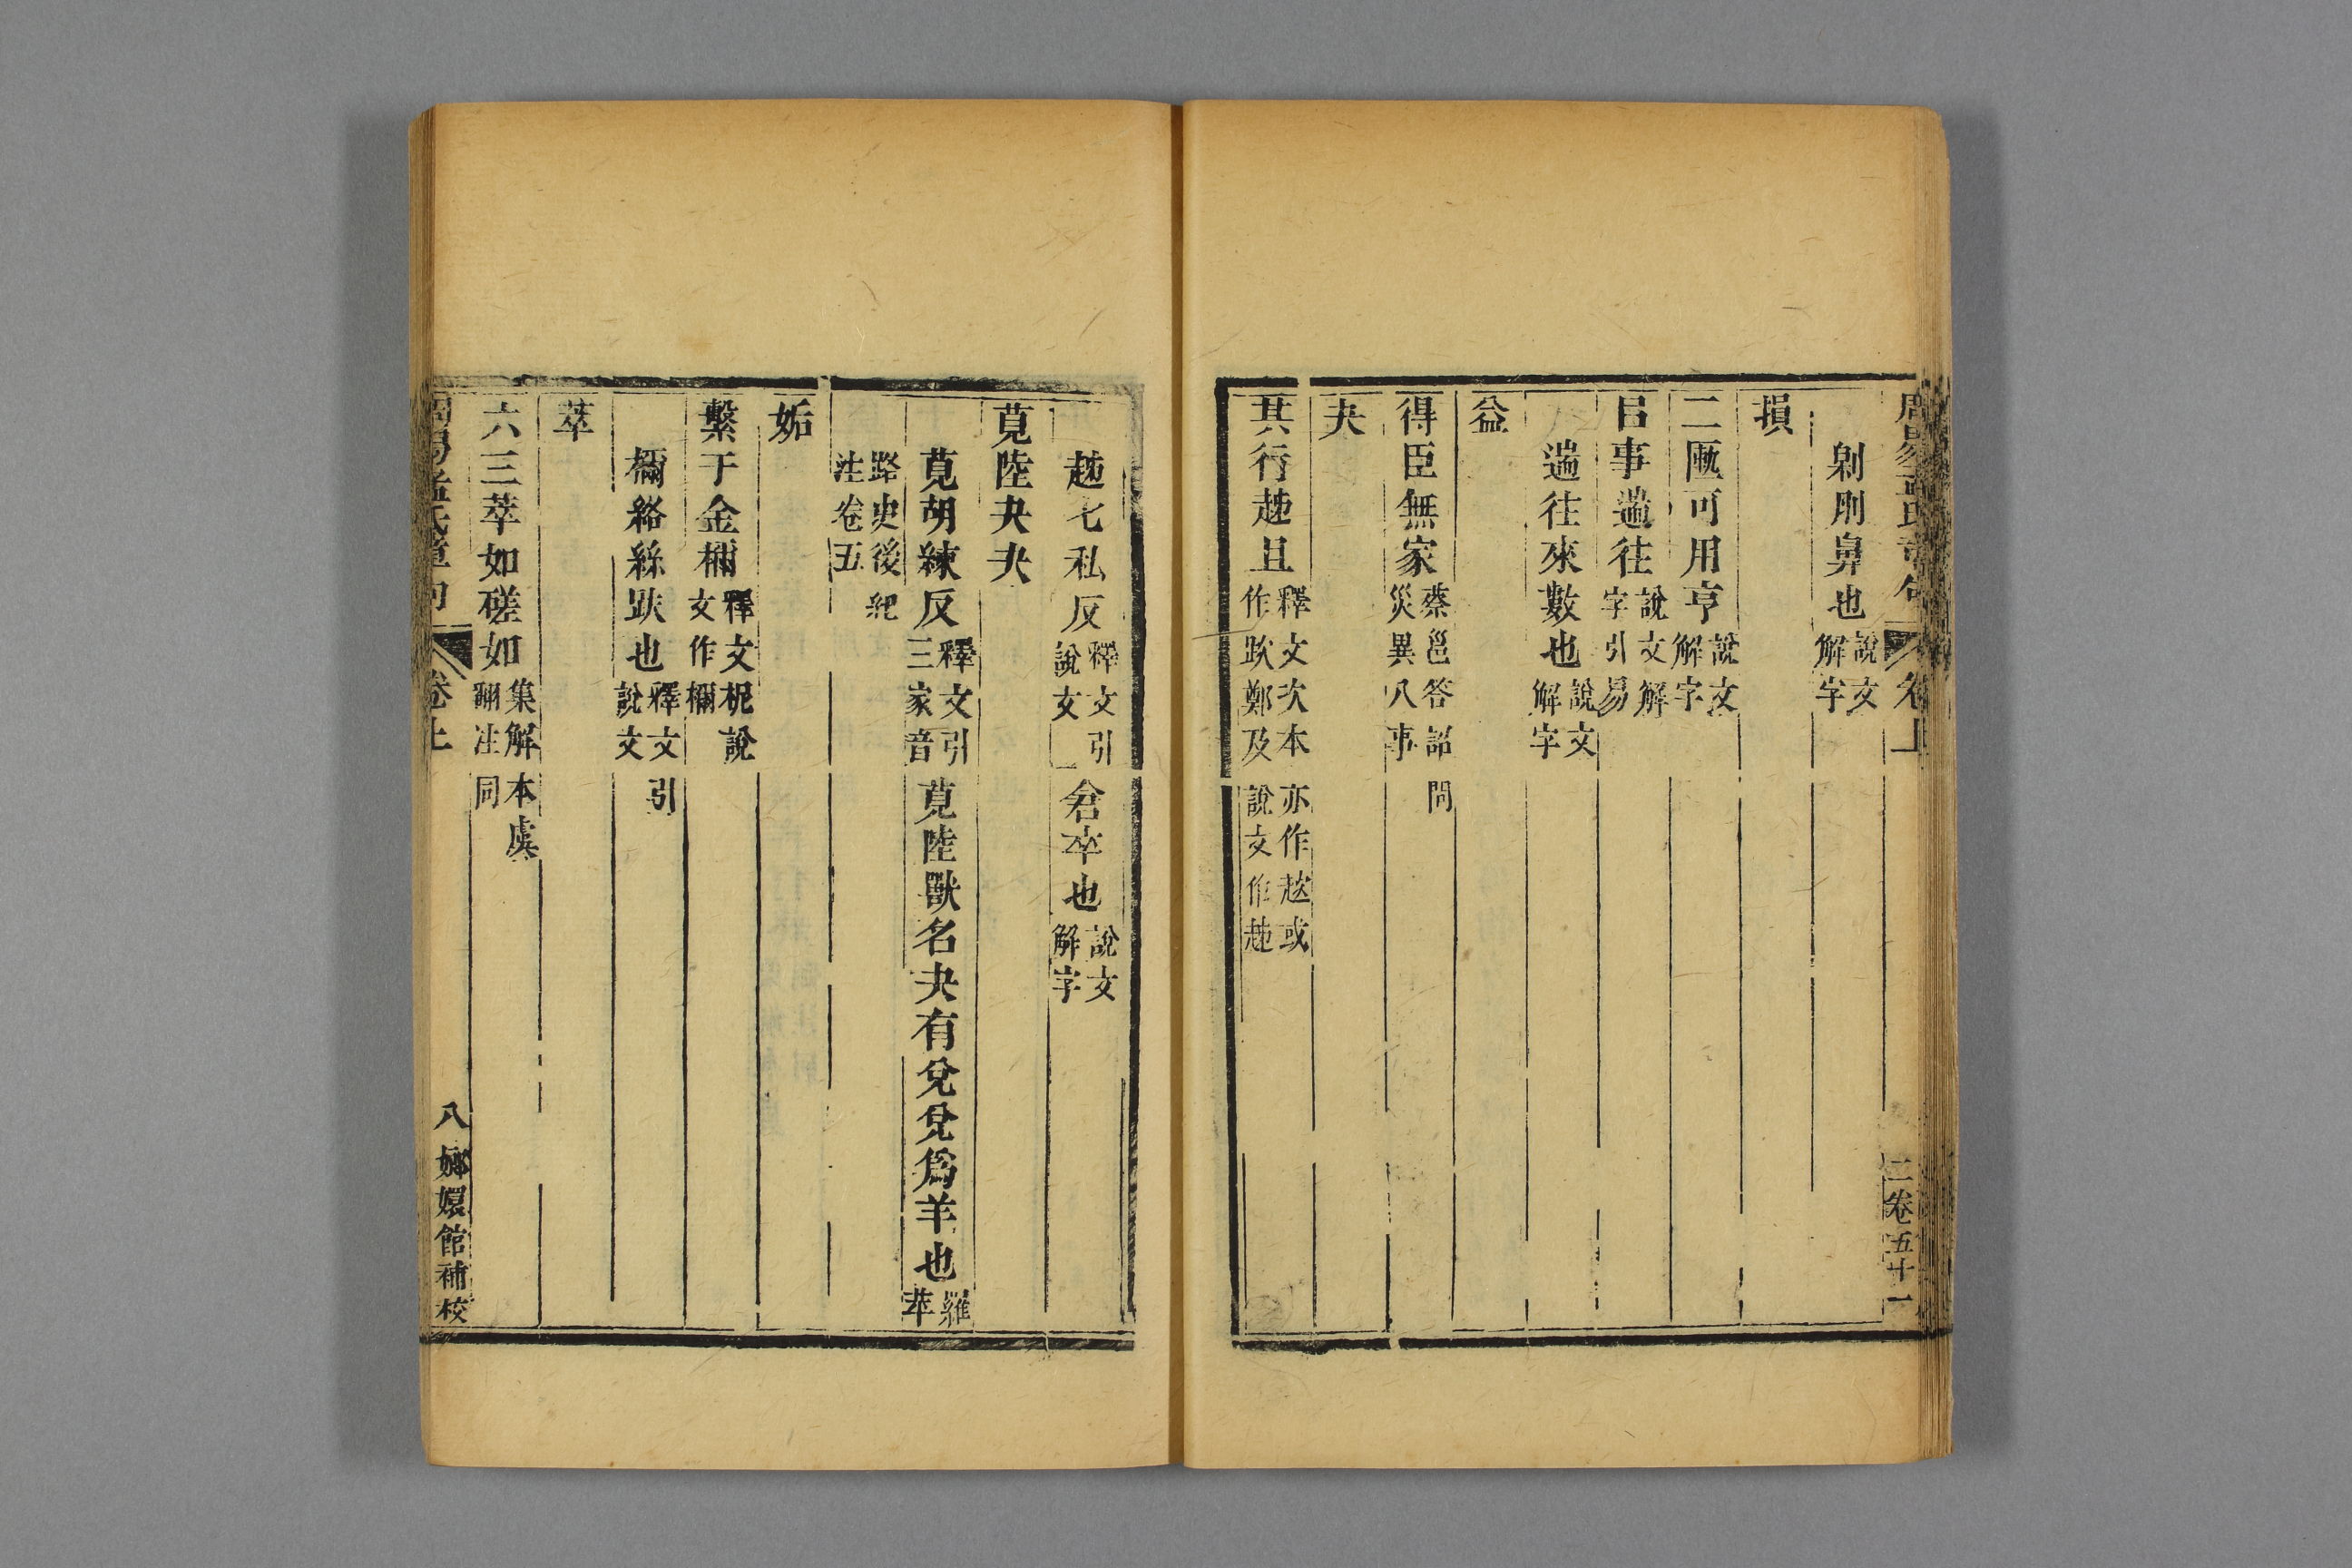 周易孟氏章句 卷上 二 卷五十一
劓刖鼻也說文解字
損
二匭可用亨說文解字
㠯事遄往說文解字引易
遄往來數也說文解字
益
得臣無家蔡邕答詔問災異八事
夬
其行趀且釋文次本亦作趑或作跌鄭及說文作趀
趀七私反釋文引說文倉卒也說文解字
莧陸夬夬
莧胡練反釋文引三家音莧陸獸名夬有兌兌爲羊也羅苹
路史後紀注卷五
姤
繫于金檷釋文柅說文作檷
檷絡絲趺也釋文引說文
萃
六三萃如磋如集解本虞翻注同
周易孟氏章句 卷上 八 嫏嬛館補校